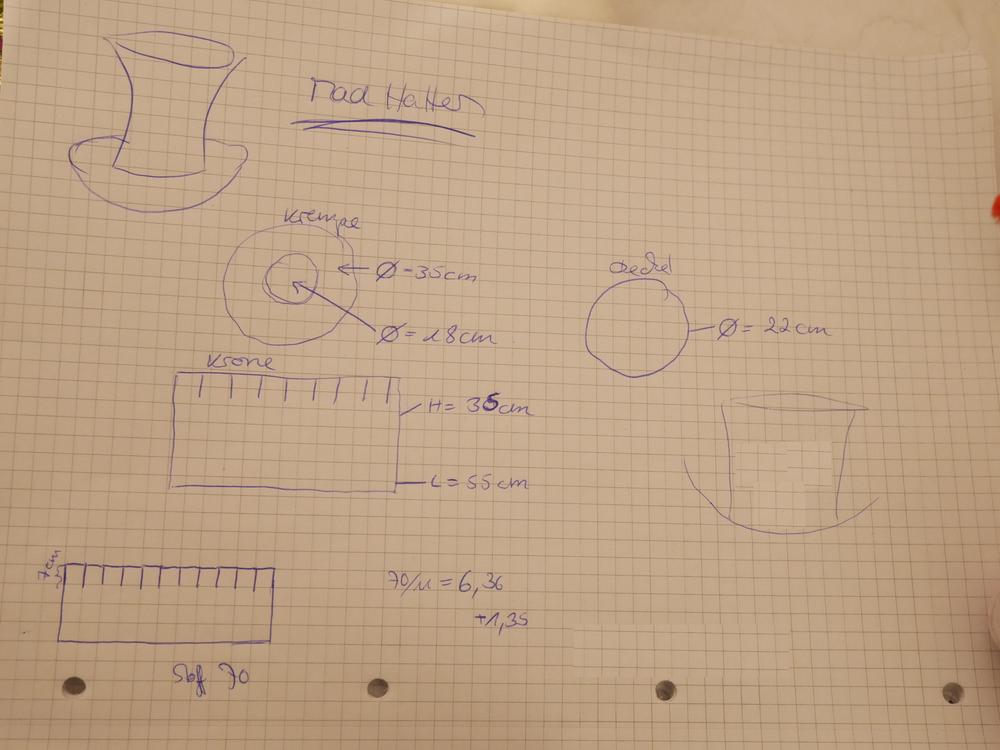 Mad Hatter
Krempe
Ø-35cm
Ø=18cm
Deckel
Ø= 22cm
Krone
H= 35cm
L=55cm
7cm
70/11=6,36
+1,35
70